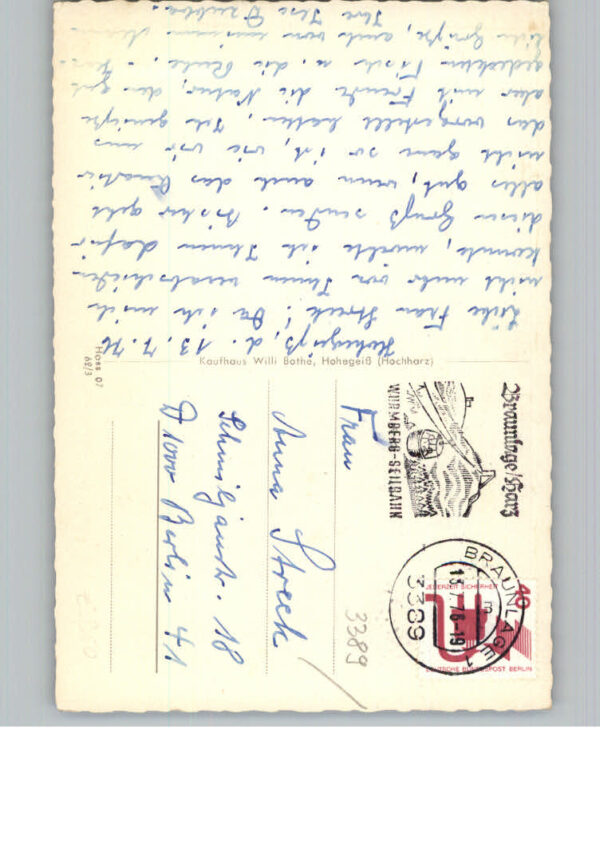 Hohegeiß, d. 13.7.76
Liebe Frau Streck! Da ich mich
nicht mehr von Ihnen verabschieden
konnte, wollte ich Ihnen dafür
diesen Gruß senden. Bisher geht
alles gut, wenn auch das Quartier
nicht ganz so ist, wie wir uns
das vorgestellt hatten. Ich genieße
aber mit Freude die Natur, den gut
gedeckten Tisch u. die Ruhe.
liebe Grüße, auch von meinem Mann
Ihre Ilse
Kaufhaus Willi Bothe, Hohegeiß (Hochharz)
Hoss 07
68/3
Frau
Anna Streck
Schmiljanstr. 18
D 1000 Berlin 41
3389
Braunlage/Harz
WURMBERG-SEILBAHN
BRAUNLAGE 1
13.7.76-19
3389
40
JEDERZEIT SICHERHEIT
DEUTSCHE BUNDESPOST BERLIN